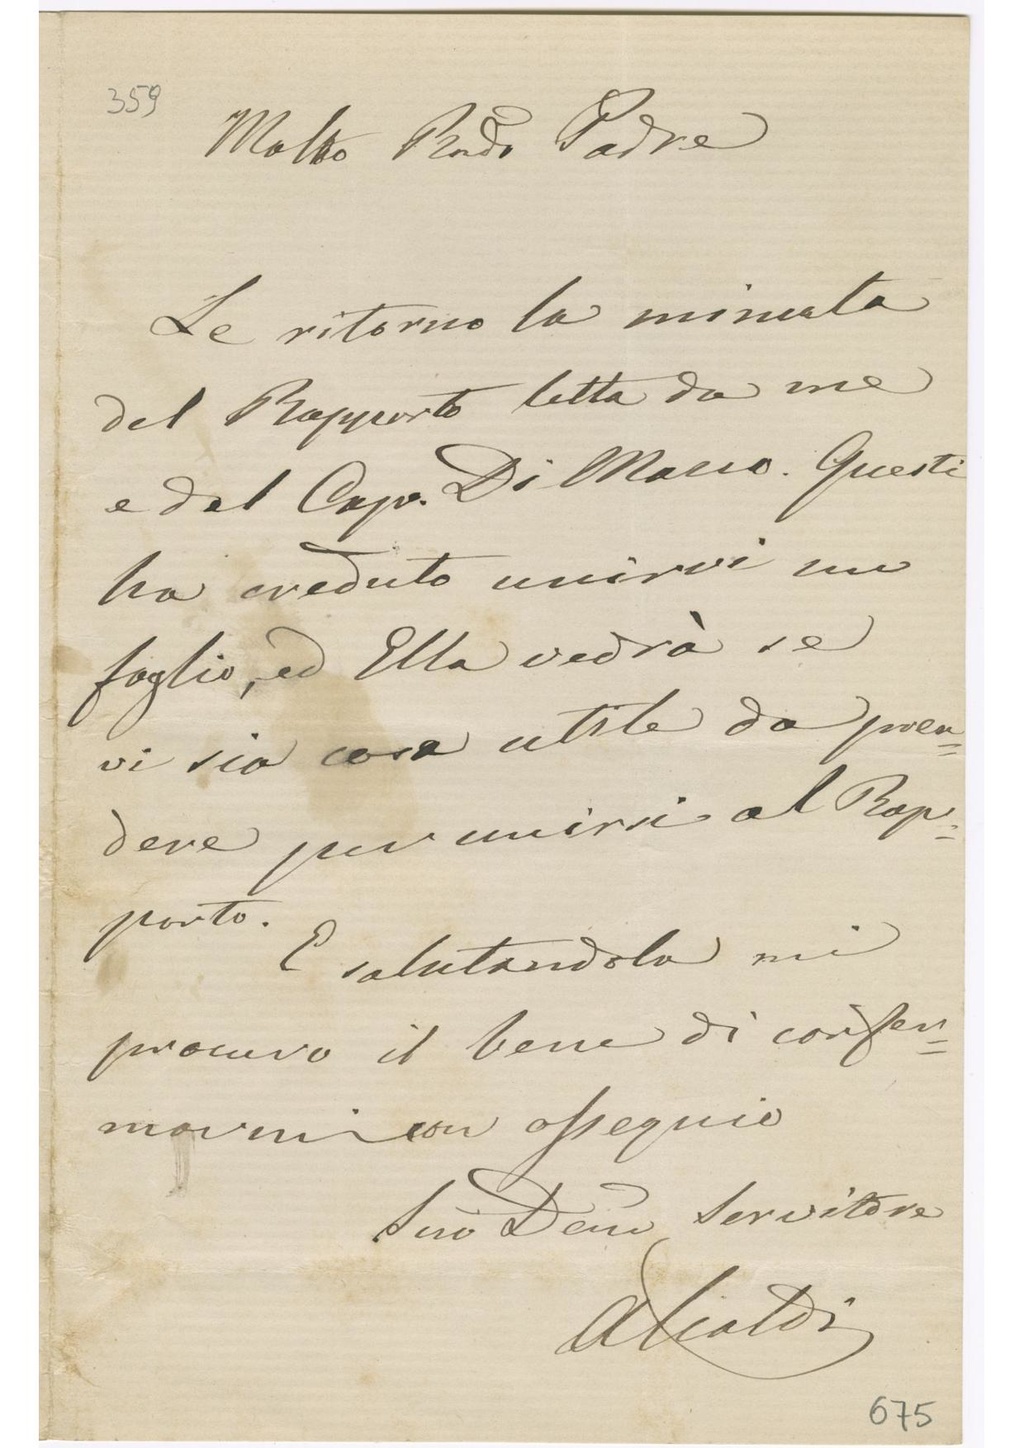 359
Molto Rndo Padre
Le ritorno la minuta
del Rapporto letta da me
e dal Cap. Di Marco. Questi
ha creduto unirvi un
foglio, ed Ella vedrà se
vi sia cosa utile da pren=
dere per unirsi al Rap=
porto.
E salutandola mi
procuro il bene di confer=
marmi con ossequio
Suo Devmo Servitore
ACialdi
675